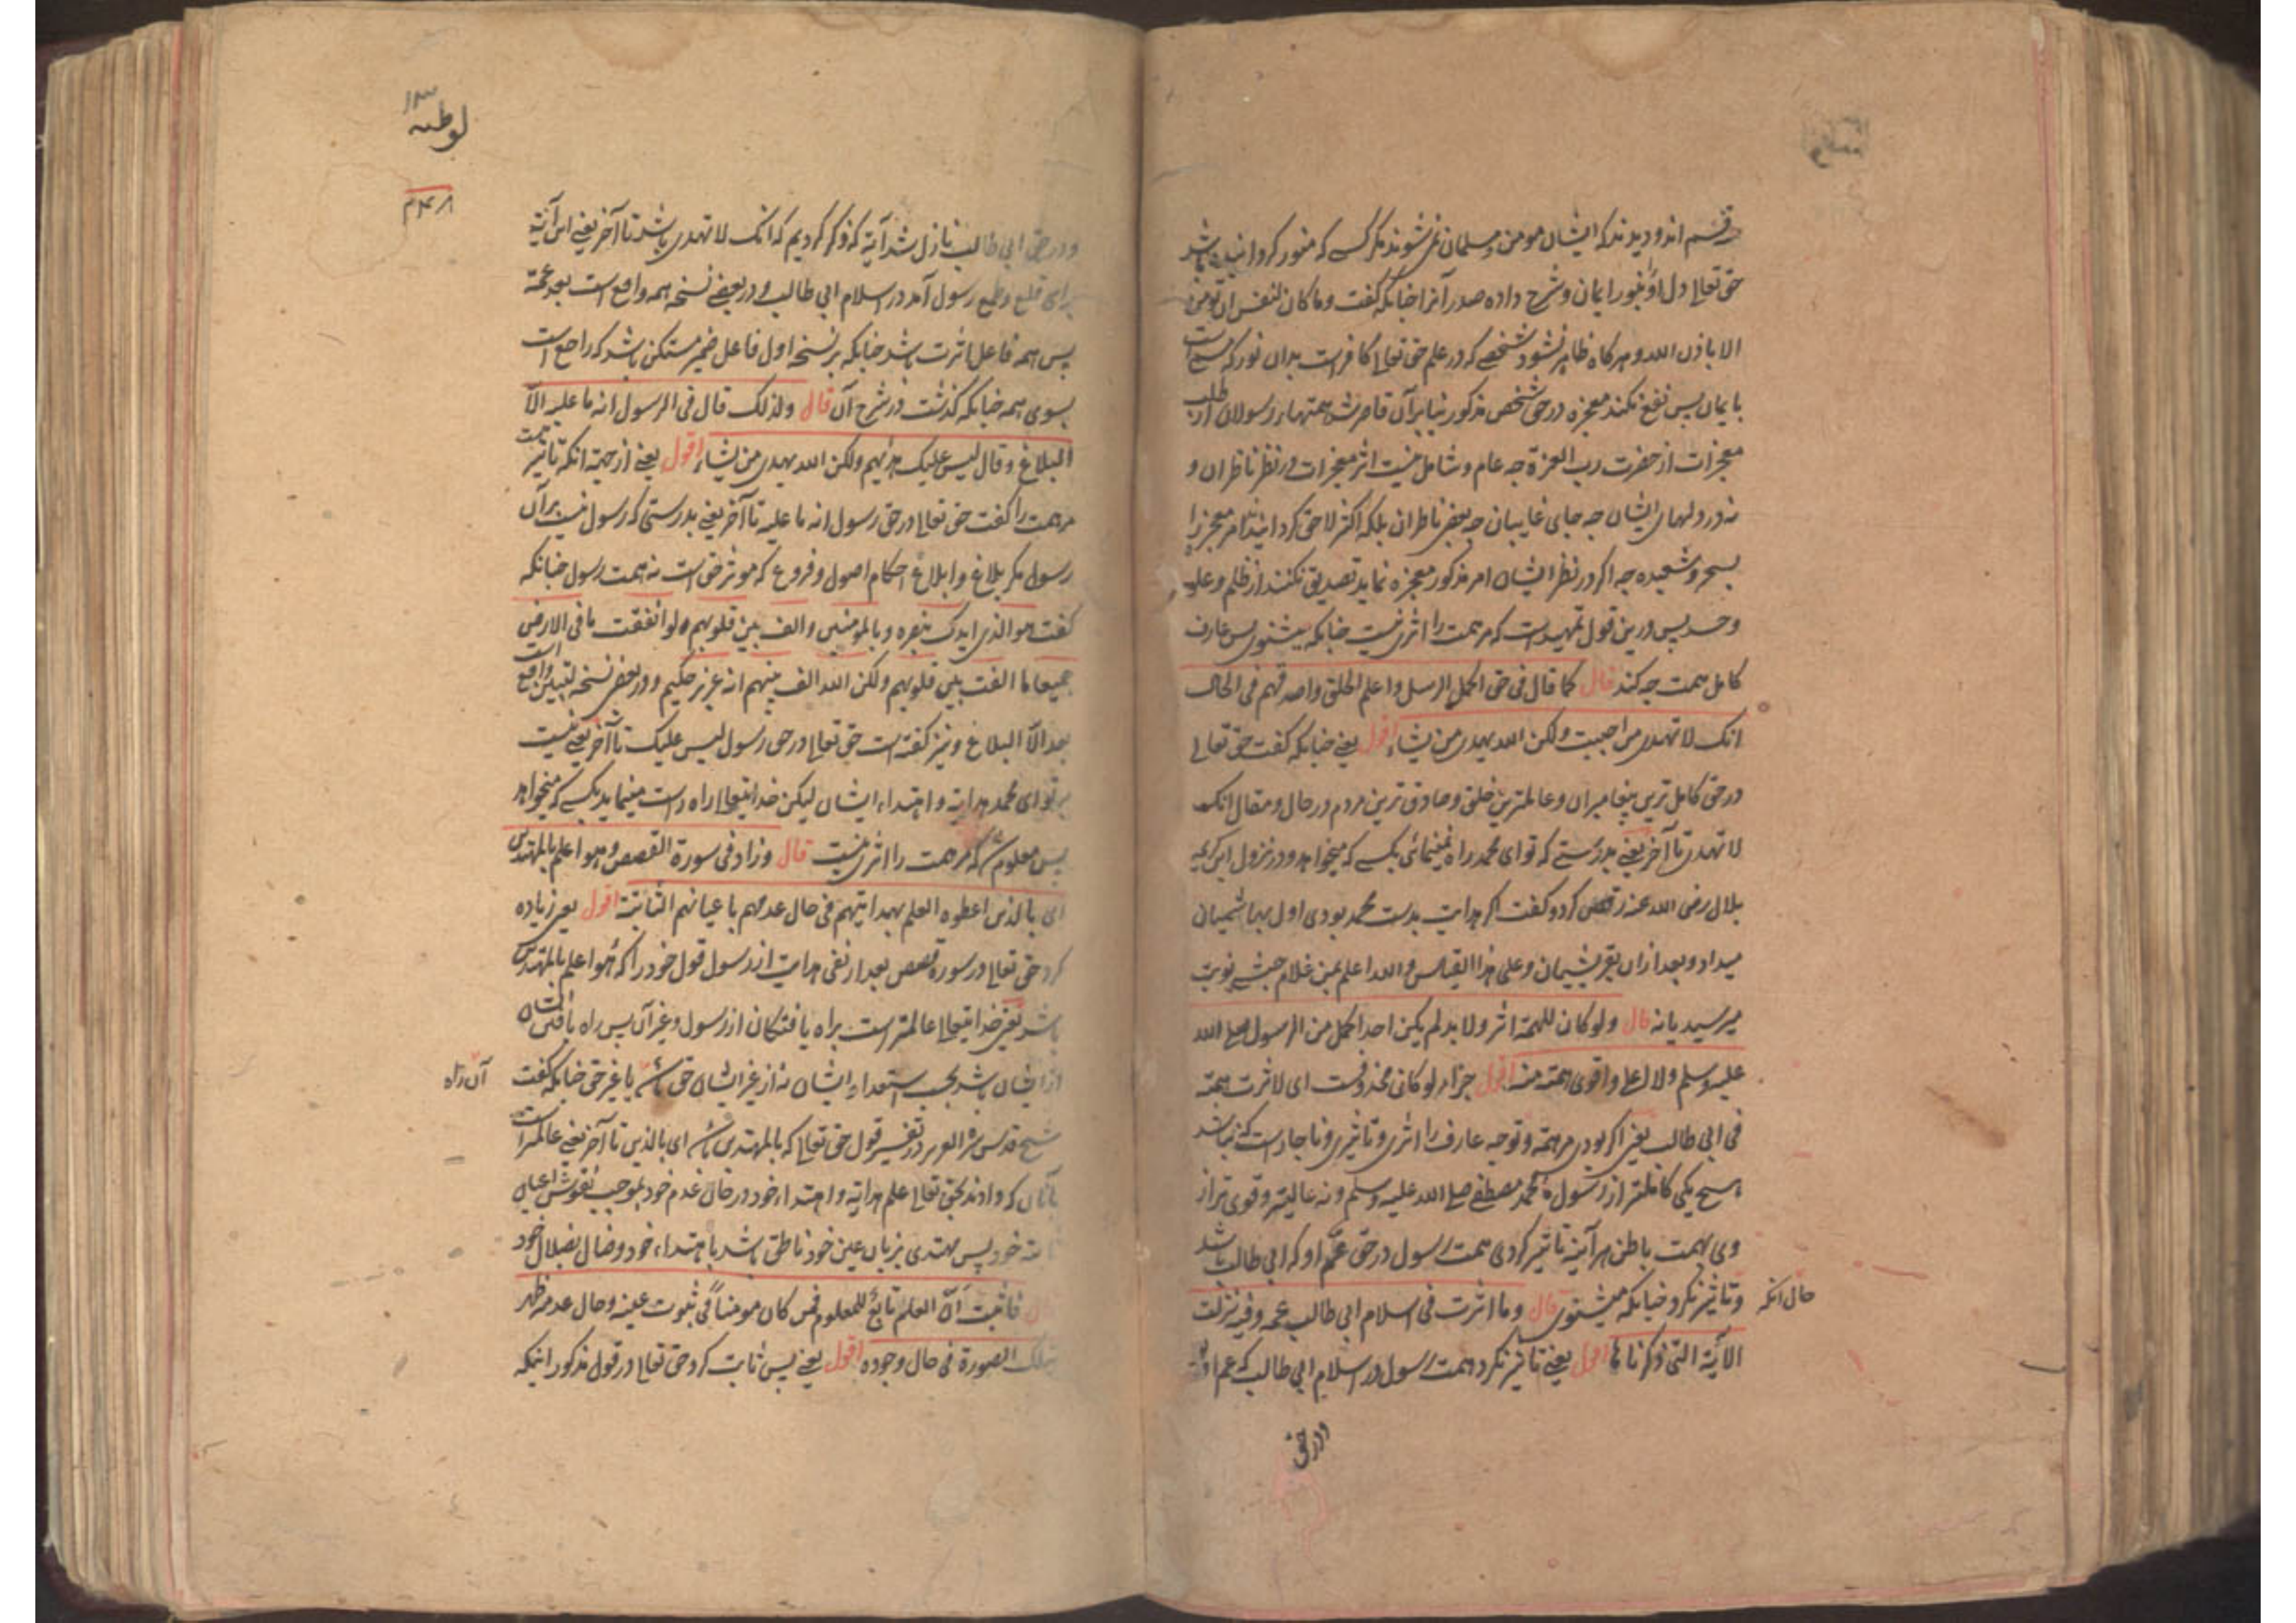 قسم اند و دیدند که ایشان مومن و مسلمان نمی شوند مگر کسے که منور گردانیده باشد
حق تعالی دل او بنور ایمان و شرح داده صدر آنرا چنانکه گفت وما کان لنفس ان تومن
الا باذن الله و هرگاه ظاهر نشود شخصے که در علم حق تعالی کافر است بدان نور که مسمے است
بایمان پس نفع نکند معجزه در حق شخص مذکور بنابر آن قاصر شد همتهاء رسولان از طلب
معجزات از حضرت رب العزة چه عام و شامل نیست اثر معجزات در نظر ناظران و
نه در دلهای ایشان چه جای غایبان چه بعض ناظران بلکه اکثر لاحق گردانیدند امر معجز را
بسحر و شعبده چه اگر در نظر ایشان امر مذکور معجزه نماید تصدیق نکنند از ظلم و علو
و حسد پس درین قول تمهید است که مر همت را اثری نیست چنانکه میشنوی پس عارف
کامل همت چه کند قال کما قال فی حق اکمل الرسل و اعلم الخلق واصدقهم فی الحال
انک لا تهدی من احببت ولکن الله یهدی من یشاء اقول یعنے چنانکه گفت حق تعالی
در حق کامل ترین پیغامبران و عالمترین خلق و صادق ترین مردم در حال و مقال انک
لا تهدی تا آخر یعنے بدرستے که تو ای محمد راه نمینمائی بکسے که میخواهد و در نزول این کریمه
بلال رضی الله عنه رقص کرد و گفت اگر هدایت بدست محمد بودی اول بهاشمیان
میداد و بعد از آن بقریشیان وعلی هذا القیاس والله اعلم بمن غلام حبشے نوبت
میرسید یا نه قال ولو کان للهمة اثر ولا بد لم یکن احد اکمل من الرسول صلے الله
علیه وسلم ولا اعلی و اقوی همته منه اقول جزاء لو کان محذوفست ای لاثرت همته
فی ابی طالب یعنے اگر بودی مر همته و توجه عارف را اثری و تاثیری و ناچار است که نباشد
هیچ یکی کاملتر از رسول محمد مصطفے صلے الله علیه وسلم و نه عالیتر و قوی تر از
وی بهمت باطن هر آئینه تاثیر کردی همت رسول در حق عم او که ابی طالب باشد
و تاثیر نکرد چنانکه میشنوی قال وما اثرت فی اسلام ابی طالب عمه وفیه نزلت
حال انکه
الآیة التی ذکرناها اقول یعنے تاثیر نکرد همت رسول در اسلام ابی طالب که عم او بود
و در حق
لوطیه
و در حق ابی طالب نازل شد آیة که ذکر کردیم که انک لا تهدی باشد تا آخر یعنے این آیة
برای قلع و طمع رسول آمد در اسلام ابی طالب و در بعضے نسخه همه واقع است بعد عمه
پس همه فاعل اثرت باشد چنانکه بر نسخه اول فاعل ضمیر مستکن باشد که راجع است
بسوی همه چنانکه گذشت در شرح آن قال ولذلک قال فی الرسول انه ما علیه الا
البلاغ و قال لیس علیک هدیهم ولکن الله یهدی من یشاء اقول یعنے از جهة آنکه تاثیر نیست
مر همت را گفت حق تعالی در حق رسول انه ما علیه تا آخر یعنے بدرستی که رسول نیست بر آن
رسول مگر بلاغ و ابلاغ احکام اصول و فروع که موثر حق است نه همت رسول چنانکه
گفت هو الذی ایدک بنصره وبالمومنین والف بین قلوبهم لو انفقت ما فی الارض
جمیعا ما الفت بین قلوبهم ولکن الله الف بینهم انه عزیز حکیم و در بعض نسخه لتبین واقع است
بعد الا البلاغ و نیز گفته است حق تعالی در حق رسول لیس علیک تا آخر یعنے نیست
بر تو ای محمد هدایة و اهتداء ایشان لیکن خدایتعالی راه راست مینماید بکسے که میخواهد
پس معلوم شد که مر همت را اثری نیست قال وزاد فی سورة القصص وهو اعلم بالمهتدین
ای بالذین اعطوه العلم بهدایتهم فی حال عدمهم باعیانهم الثابتة اقول یعنی زیاده
کرد حق تعالی در سوره قصص بعد از نفی هدایت از رسول قول خود را که هو اعلم بالمهتدین
باشد یعنے خدایتعالی عالمتر است براه یافتگان از رسول و غیر آن پس راه یافتن ایشان
از ایشان باشد بحسب استعداد ایشان نه از غیر ایشان حق باشد یا غیر حق چنانکه گفت
آن راه
شیخ قدس سره العزیز در تفسیر قول حق تعالی که بالمهتدین باشد ای بالذین تا آخر یعنے عالمتر است
بآنان که دادند بحق تعالی علم هدایة و اهتداء خود در حال عدم خود بموجب نقوش اعیان
ثابته خود پس مهتدی بزبان عین خود ناطق باشد باهتداء خود و ضال بضلال خود
قال فاثبت ان العلم تابع للمعلوم فمن کان مومنا فی ثبوت عینه وحال عدمه ظهر
بتلک الصورة فی حال وجوده اقول یعنے پس ثابت کرد حق تعالی در قول مذکور اینکه